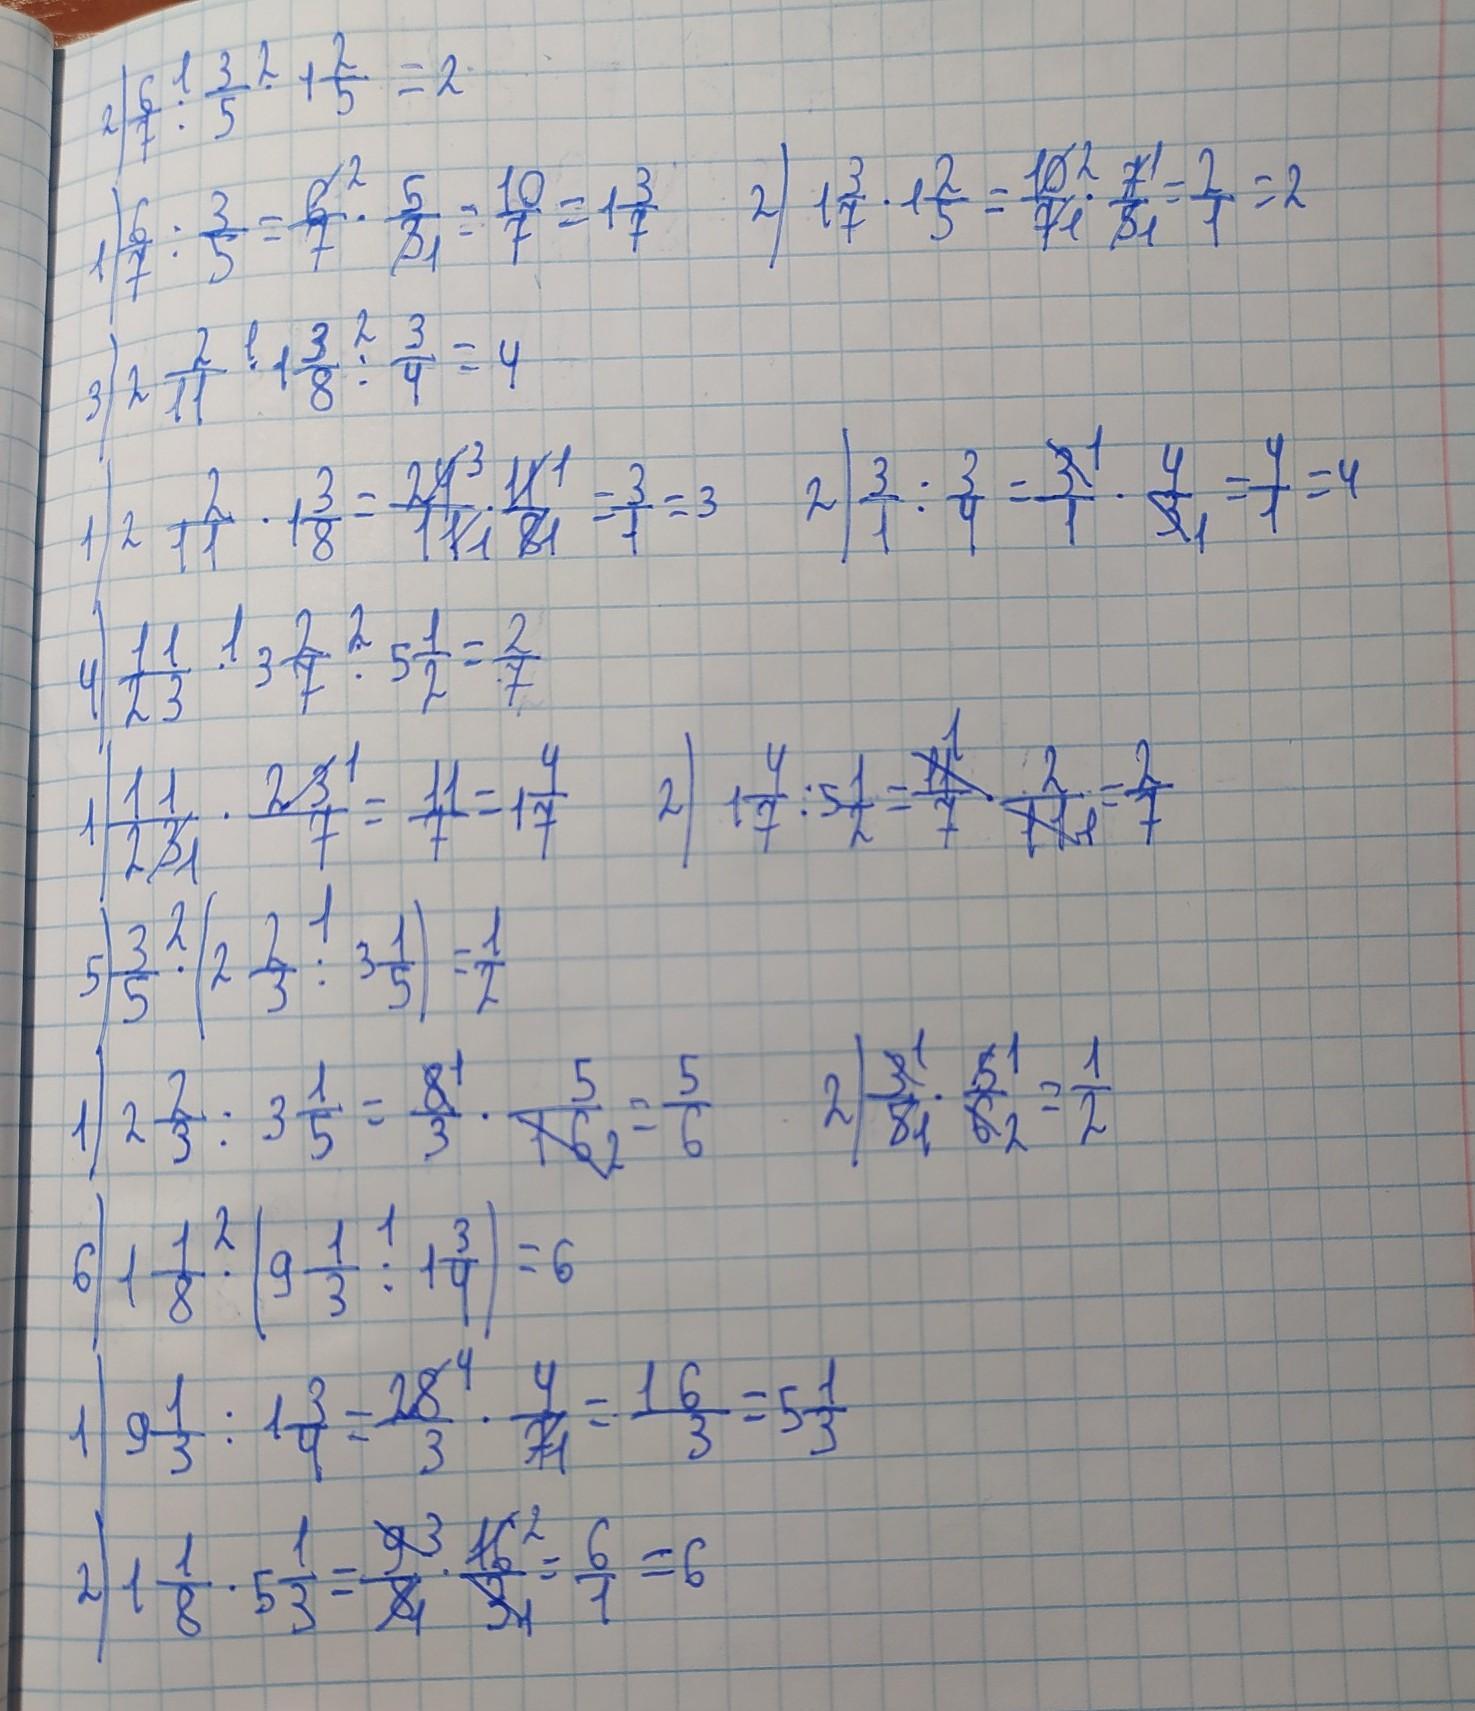 2) 6/7 :¹ 3/5 ·² 1 2/5 = 2
1) 6/7 : 3/5 = 6̸²/7 · 5/3̸₁ = 10/7 = 1 3/7 2) 1 3/7 · 1 2/5 = 1̸0̸²/7̸₁ · 7̸¹/5̸₁ = 2/1 = 2
3) 2 2/11 ·¹ 1 3/8 :² 3/4 = 4
1) 2 2/11 · 1 3/8 = 2̸4̸³/1̸1̸₁ · 1̸1̸¹/8̸₁ = 3/1 = 3 2) 3/1 : 3/4 = 3̸¹/1 · 4/3̸₁ = 4/1 = 4
4) 11/23 ·¹ 3 2/7 :² 5 1/2 = 2/7
1) 11/2̸3̸₁ · 2̸3̸¹/7 = 11/7 = 1 4/7 2) 1 4/7 : 5 1/2 = 1̸1̸¹/7 · 2/1̸1̸₁ = 2/7
5) 3/5 ·² (2 2/3 :¹ 3 1/5) = 1/2
1) 2 2/3 : 3 1/5 = 8̸¹/3 · 5/1̸6̸₂ = 5/6 2) 3̸¹/5̸₁ · 5̸¹/6̸₂ = 1/2
6) 1 1/8 ·² (9 1/3 :¹ 1 3/4) = 6
1) 9 1/3 : 1 3/4 = 2̸8̸⁴/3 · 4/7̸₁ = 16/3 = 5 1/3
2) 1 1/8 · 5 1/3 = 9̸³/8̸₁ · 1̸6̸²/3̸₁ = 6/1 = 6